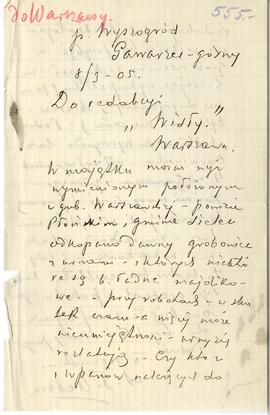 do Warszawy.
555.-
p. Wyszogród
Gawarzec-górny
8/9-05.
Do redakcyi
"Wisły."
Warszawa.
W majątku moim wyż
wymienionym położonym
w gub. Warszawskiej - powiecie
Płońskim, gminie Sielec
odkopano dawny grobowiec
z urnami - z których niektó
re są b. ładne majoliko-
we - przy robotach - w sku
tek czasu a więcej może
nieumiejętności - urny się
rozlatują - Czy kto z
z panów należących do